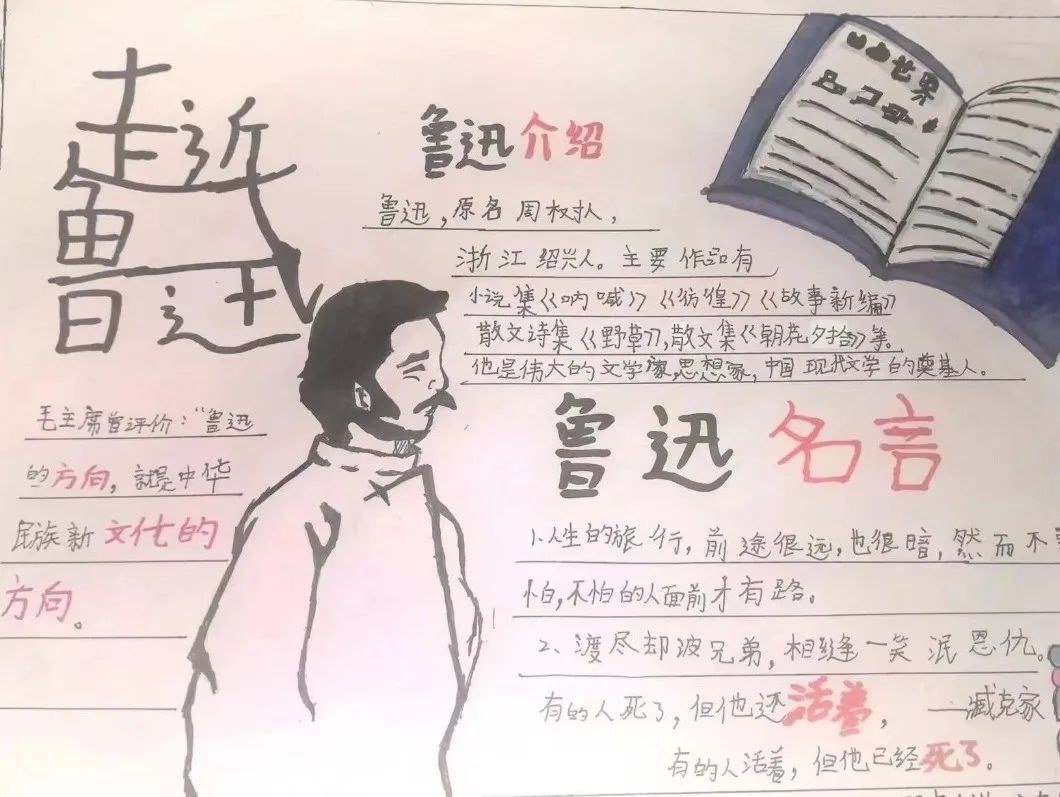 走近
鲁迅
世界
鲁迅介绍
鲁迅，原名周树人，
浙江绍兴人。主要作品有
小说集《呐喊》《彷徨》《故事新编》
散文诗集《野草》，散文集《朝花夕拾》等。
他是伟大的文学家，思想家，中国现代文学的奠基人。
毛主席曾评价：“鲁迅
的方向，就是中华
民族新文化的
方向。
鲁迅名言
1.人生的旅行，前途很远，也很暗，然而不
怕，不怕的人面前才有路。
2、渡尽却波兄弟，相缝一笑泯恩仇。
有的人死了，但他还活着，——臧克家
有的人活着，但他已经死了。